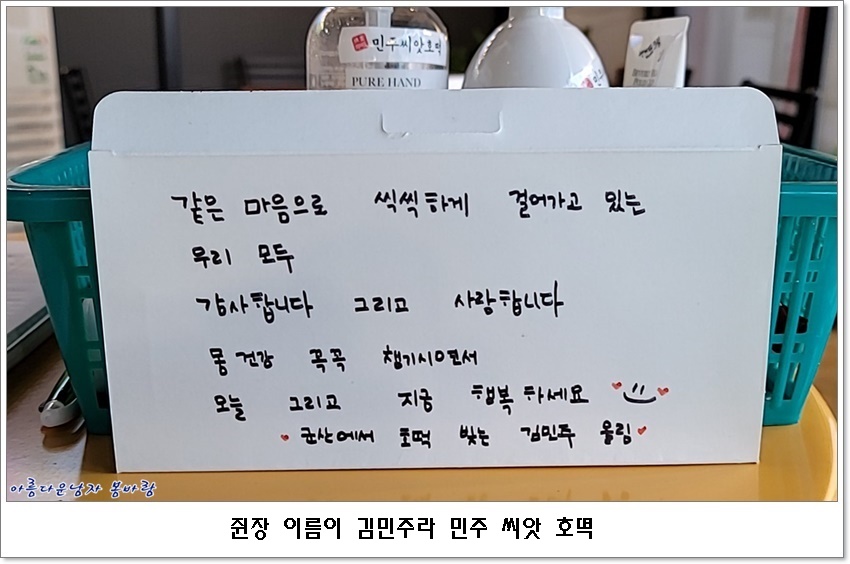 민주씨앗호떡
PURE HAND
같은 마음으로 씩씩하게 걸어가고 있는
우리 모두
감사합니다 그리고 사랑합니다
몸 건강 꼭꼭 챙기시면서
오늘 그리고 지금 행복하세요
군산에서 호떡 빚는 김민주 올림
아름다운남자 봄바람
쥔장 이름이 김민주라 민주 씨앗 호떡